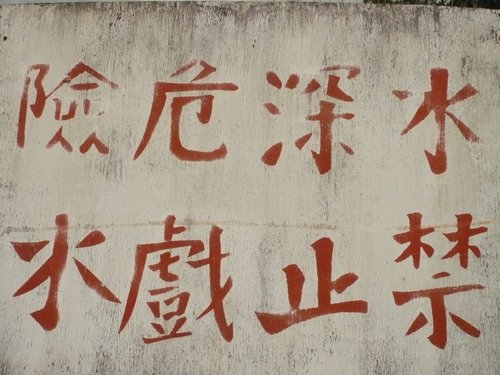 水深危險
禁止戲水